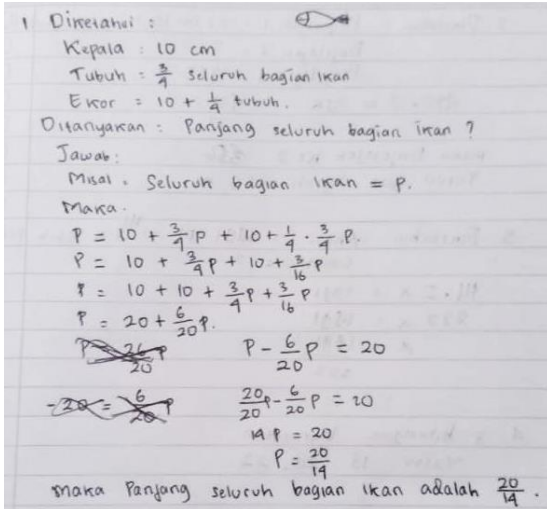 1 Diketahui :
Kepala : 10 cm
Tubuh = 3/4 seluruh bagian ikan
Ekor = 10 + 1/4 tubuh.
Ditanyakan : Panjang seluruh bagian ikan ?
Jawab:
Misal . Seluruh bagian ikan = P.
Maka.
P = 10 + 3/4 P + 10 + 1/4 . 3/4 P.
P = 10 + 3/4 P + 10 + 3/16 P
P = 10 + 10 + 3/4 P + 3/16 P
P = 20 + 6/20 P.
P - 6/20 P = 20
-20 = 6/20 P
20/20 P - 6/20 P = 20
14 P = 20
P = 20/14
Maka Panjang seluruh bagian ikan adalah 20/14 .